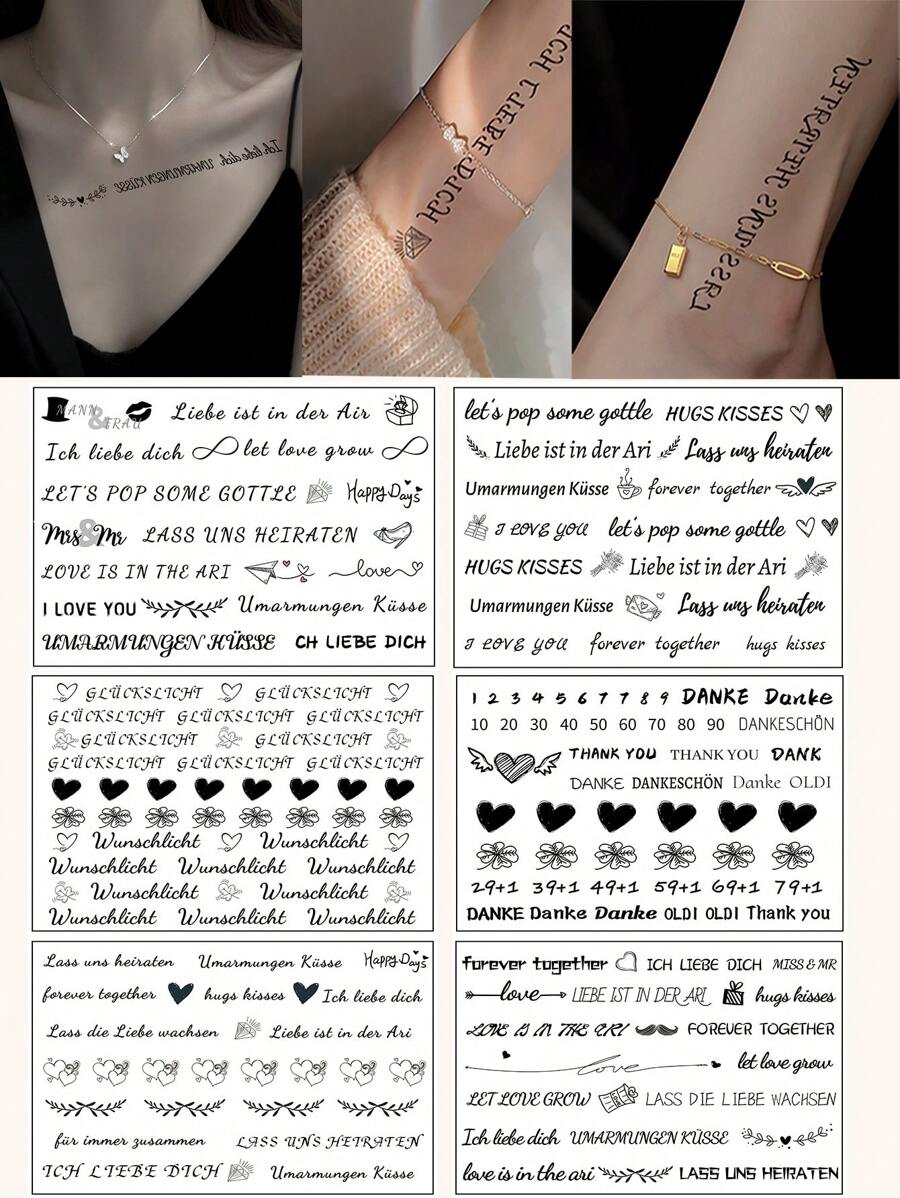 Ich liebe dich UMARMUNGEN KÜSSE
ICH LIEBE DICH
LASS UNS HEIRATEN
MANN & FRAU Liebe ist in der Air
Ich liebe dich let love grow
LET'S POP SOME GOTTLE Happy Days
Mrs & Mr LASS UNS HEIRATEN
LOVE IS IN THE ARI love
I LOVE YOU Umarmungen Küsse
UMARMUNGEN KÜSSE CH LIEBE DICH
let's pop some gottle HUGS KISSES
Liebe ist in der Ari Lass uns heiraten
Umarmungen Küsse forever together
I LOVE YOU let's pop some gottle
HUGS KISSES Liebe ist in der Ari
Umarmungen Küsse Lass uns heiraten
I LOVE YOU forever together hugs kisses
GLÜCKSLICHT GLÜCKSLICHT
GLÜCKSLICHT GLÜCKSLICHT GLÜCKSLICHT
GLÜCKSLICHT GLÜCKSLICHT
GLÜCKSLICHT GLÜCKSLICHT GLÜCKSLICHT
Wunschlicht Wunschlicht
Wunschlicht Wunschlicht Wunschlicht
Wunschlicht Wunschlicht
Wunschlicht Wunschlicht Wunschlicht
1 2 3 4 5 6 7 7 8 9 DANKE Danke
10 20 30 40 50 60 70 80 90 DANKESCHÖN
THANK YOU THANK YOU DANK
DANKE DANKESCHÖN Danke OLDI
29+1 39+1 49+1 59+1 69+1 79+1
DANKE Danke Danke OLDI OLDI Thank you
Lass uns heiraten Umarmungen Küsse Happy Days
forever together hugs kisses Ich liebe dich
Lass die Liebe wachsen Liebe ist in der Ari
für immer zusammen LASS UNS HEIRATEN
ICH LIEBE DICH Umarmungen Küsse
forever together ICH LIEBE DICH MISS & MR
love LIEBE IST IN DER ARI hugs kisses
LOVE IS IN THE ARI FOREVER TOGETHER
love let love grow
LET LOVE GROW LASS DIE LIEBE WACHSEN
Ich liebe dich UMARMUNGEN KÜSSE
love is in the ari LASS UNS HEIRATEN